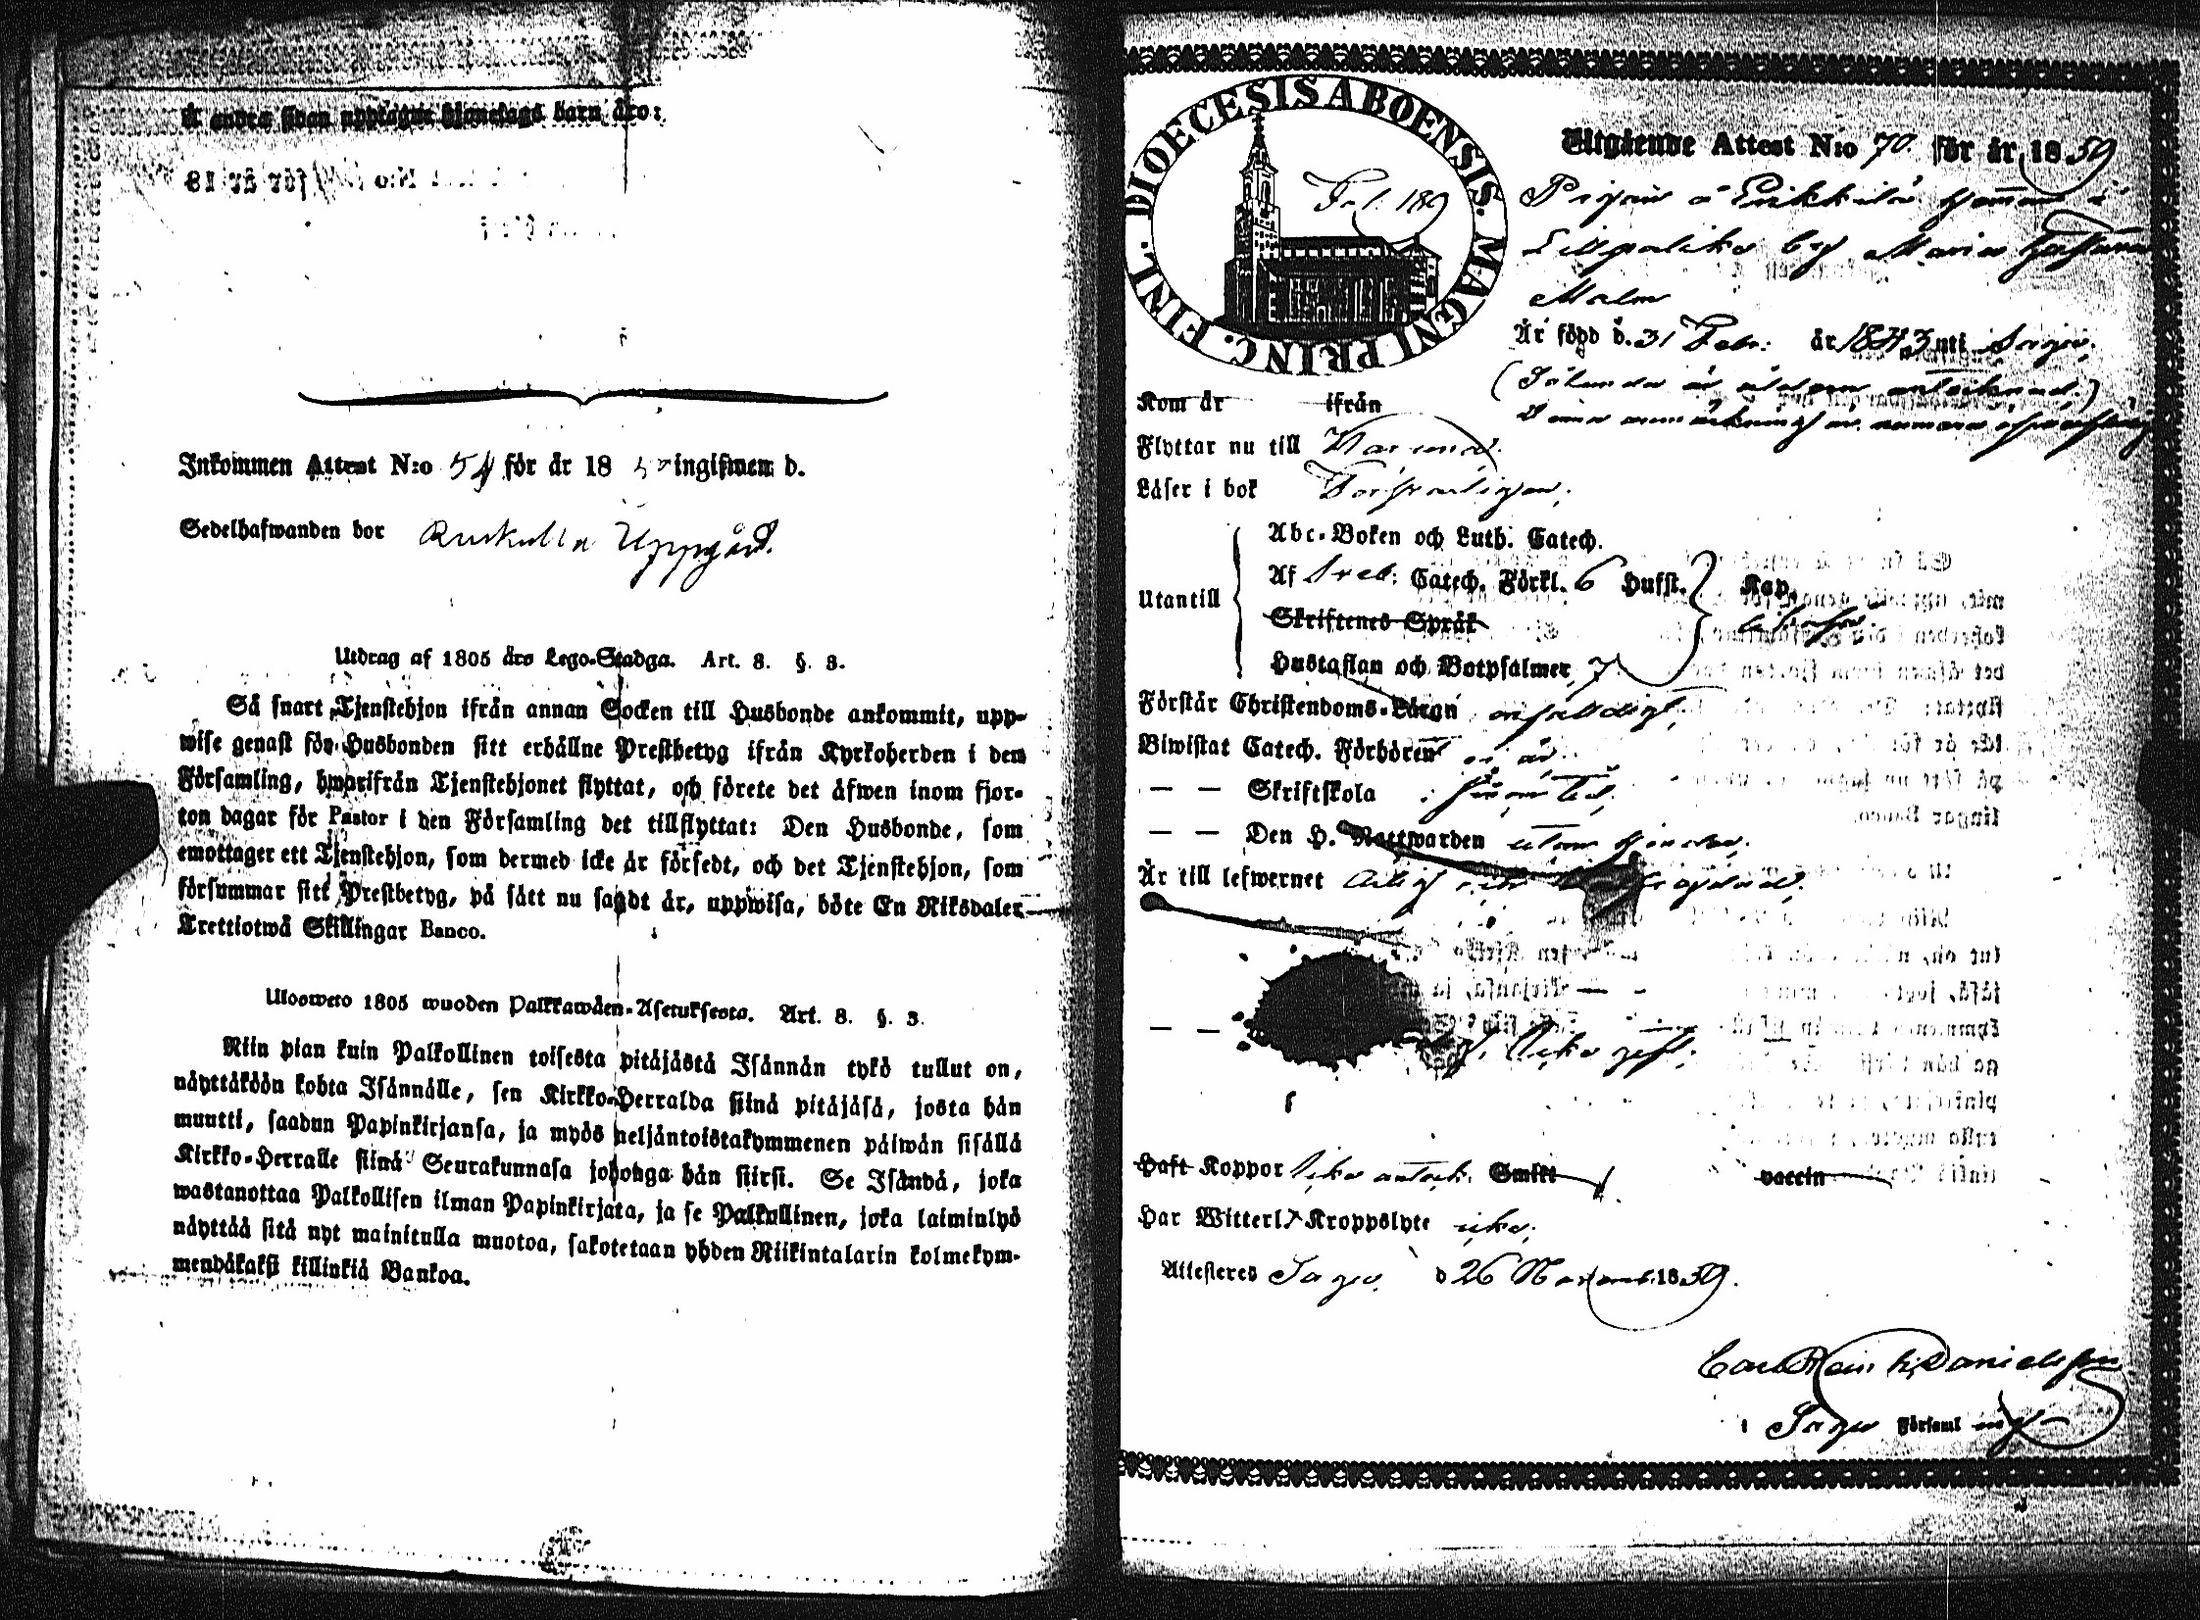 Å andra sidan upptagne hjonelags barn äro:
Inkommen Attest N:o 54 för år 18 ingifwen d.
Sedelhafwanden bor Ruskulla Uppgård.
Utdrag af 1805 års Lego-Stadga. Art. 8. §. 3.
Så snart Tjenstehjon ifrån annan Socken till Husbonde ankommit, upp-
wise genast för Husbonden sitt erhållne Prestbetyg ifrån Kyrkoherden i den
Församling, hwarifrån Tjenstehjonet flyttat, och förete det äfwen inom fjor-
ton dagar för Pastor i den Församling det tillflyttat: Den Husbonde, som
emottager ett Tjenstehjon, som dermed icke är försedt, och det Tjenstehjon, som
försummar sitt Prestbetyg, på sätt nu sagdt är, uppwisa, böte En Riksdaler
Trettiotwå Skillingar Banco.
Ulosweto 1805 wuoden Palkkawäen-Asetuksesta. Art. 8. §. 3.
Niin pian kuin Palkollinen toisesta pitäjästä Isännän tykö tullut on,
näyttäköön kohta Isännälle, sen Kirkko-Herralda siinä pitäjäsä, josta hän
muutti, saadun Papinkirjansa, ja myös neljäntoistakymmenen päiwän sisällä
Kirkko-Herralle siinä Seurakunnasa johonga hän siirsi. Se Isändä, joka
wastanottaa Palkollisen ilman Papinkirjata, ja se Palkollinen, joka laiminlyö
näyttää sitä nyt mainitulla muotoa, sakotetaan yhden Riikintalarin kolmekym-
mendäkaksi killinkiä Bankoa.
DIOECESIS ABOENSIS. MAGNI PRINC. FINL.
Fol. 189
Utgående Attest N:o 70 för år 1859
Pigan å Erikkilä hemman i
Lillpaliko by Maria
Malm
Är född d. 31 Febr: år 1843 uti Sagu.
(Sålunda är ålderen antecknad.)
Denna anmärkning av
Kom år ifrån
Flyttar nu till
Läser i bok Försvarligen;
Utantill
Abc-Boken och Luth. Catech.
Af Sveb: Catech. Förkl. 6 Hufst. Kap.
Skriftenes Språk
Hustaflan och Botpsalmer 7
Förstår Christendoms-Läran enfaldigt,
Biwistat Catech. Förhören
— — Skriftskola
— — Den H. Nattwarden utom hinder.
Är till lefwernet ärlig och
— — Icke gift.
Haft Koppor icke anteckn. Smitt vaccin
Har Witterl. Kroppslyte icke;
Attesteres Sagu d 26 Novemb. 1859.
Carl Reinh. Danielsson
i Sagu Församl ing